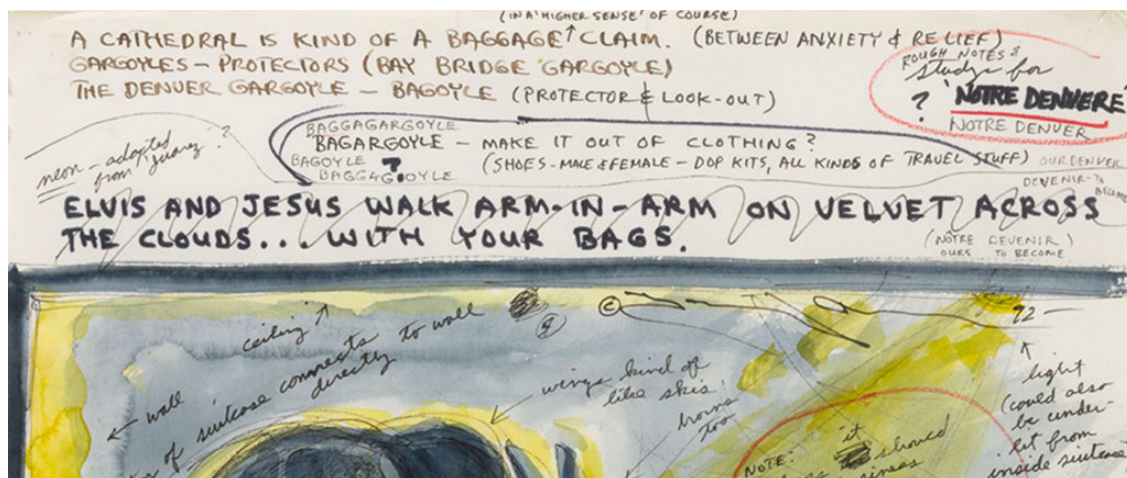 (IN A 'HIGHER SENSE' OF COURSE)
A CATHEDRAL IS KIND OF A BAGGAGE ↑ CLAIM. (BETWEEN ANXIETY & RELIEF)
GARGOYLES – PROTECTORS (BAY BRIDGE GARGOYLE)
THE DENVER GARGOYLE – BAGOYLE (PROTECTOR & LOOK-OUT)
ROUGH NOTES &
study for
? 'NOTRE DENVERE'
NOTRE DENVER
neon – adopted
from juarez?
BAGGAGARGOYLE
BAGARGOYLE – MAKE IT OUT OF CLOTHING?
BAGOYLE ?
(SHOES – MALE & FEMALE – DOP KITS, ALL KINDS OF TRAVEL STUFF)
BAGGAGOYLE
OUR DENVER
DEVENIR – to
BECOME
ELVIS AND JESUS WALK ARM-IN-ARM ON VELVET ACROSS
THE CLOUDS... WITH YOUR BAGS.
(NÔTRE DEVENIR)
OURS TO BECOME
©
92 –
ceiling
wall
of suitcase connects to wall
directly
wings kind of
like skis
horns
too
light
(could also
be under-
lit from
inside suitcase
NOTE: it
should